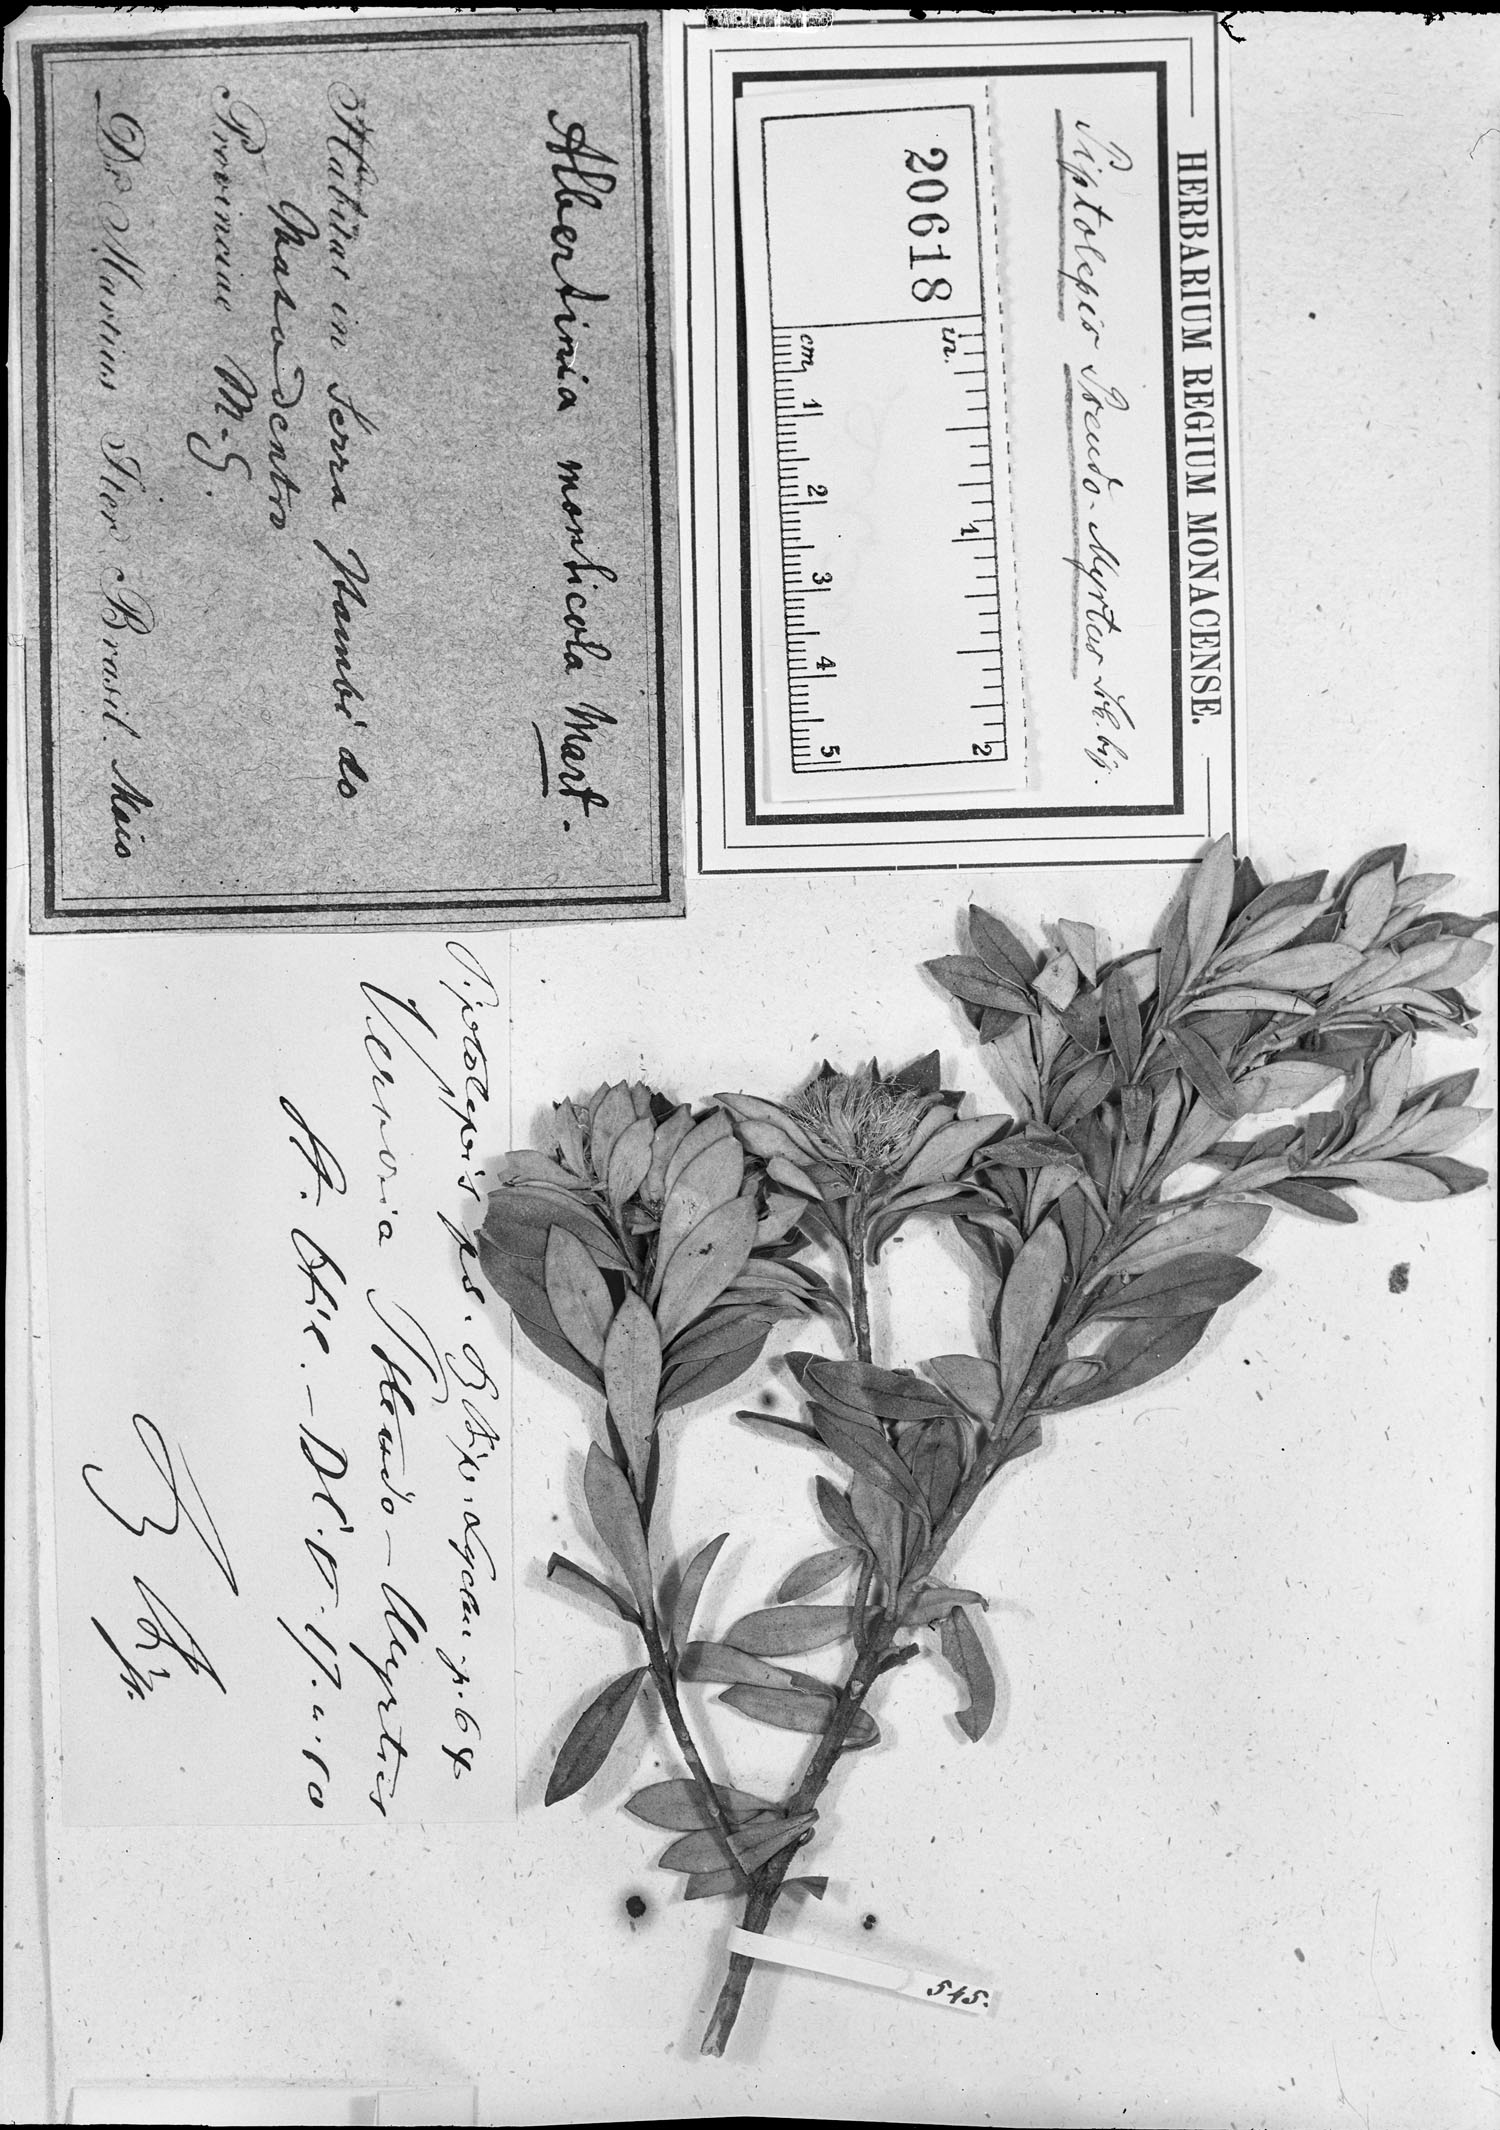 HERBARIUM REGIUM MONACENSE.
Piptolepis Pseudo-Myrtus Sch. bip.
20618
in. 1 2
cm 1 2 3 4 5
Albertinia monticola Mart.
Habitat in Serra Itambé do
Matodentro
Provinciae M. G.
Dr. Martius Iter Brasil. Maio
Piptolepis ps. Bip.
p. 64
Vernonia Pseudo-Myrtus
St. Hil. - DC. V. 17. n. 10
Bip.
545.